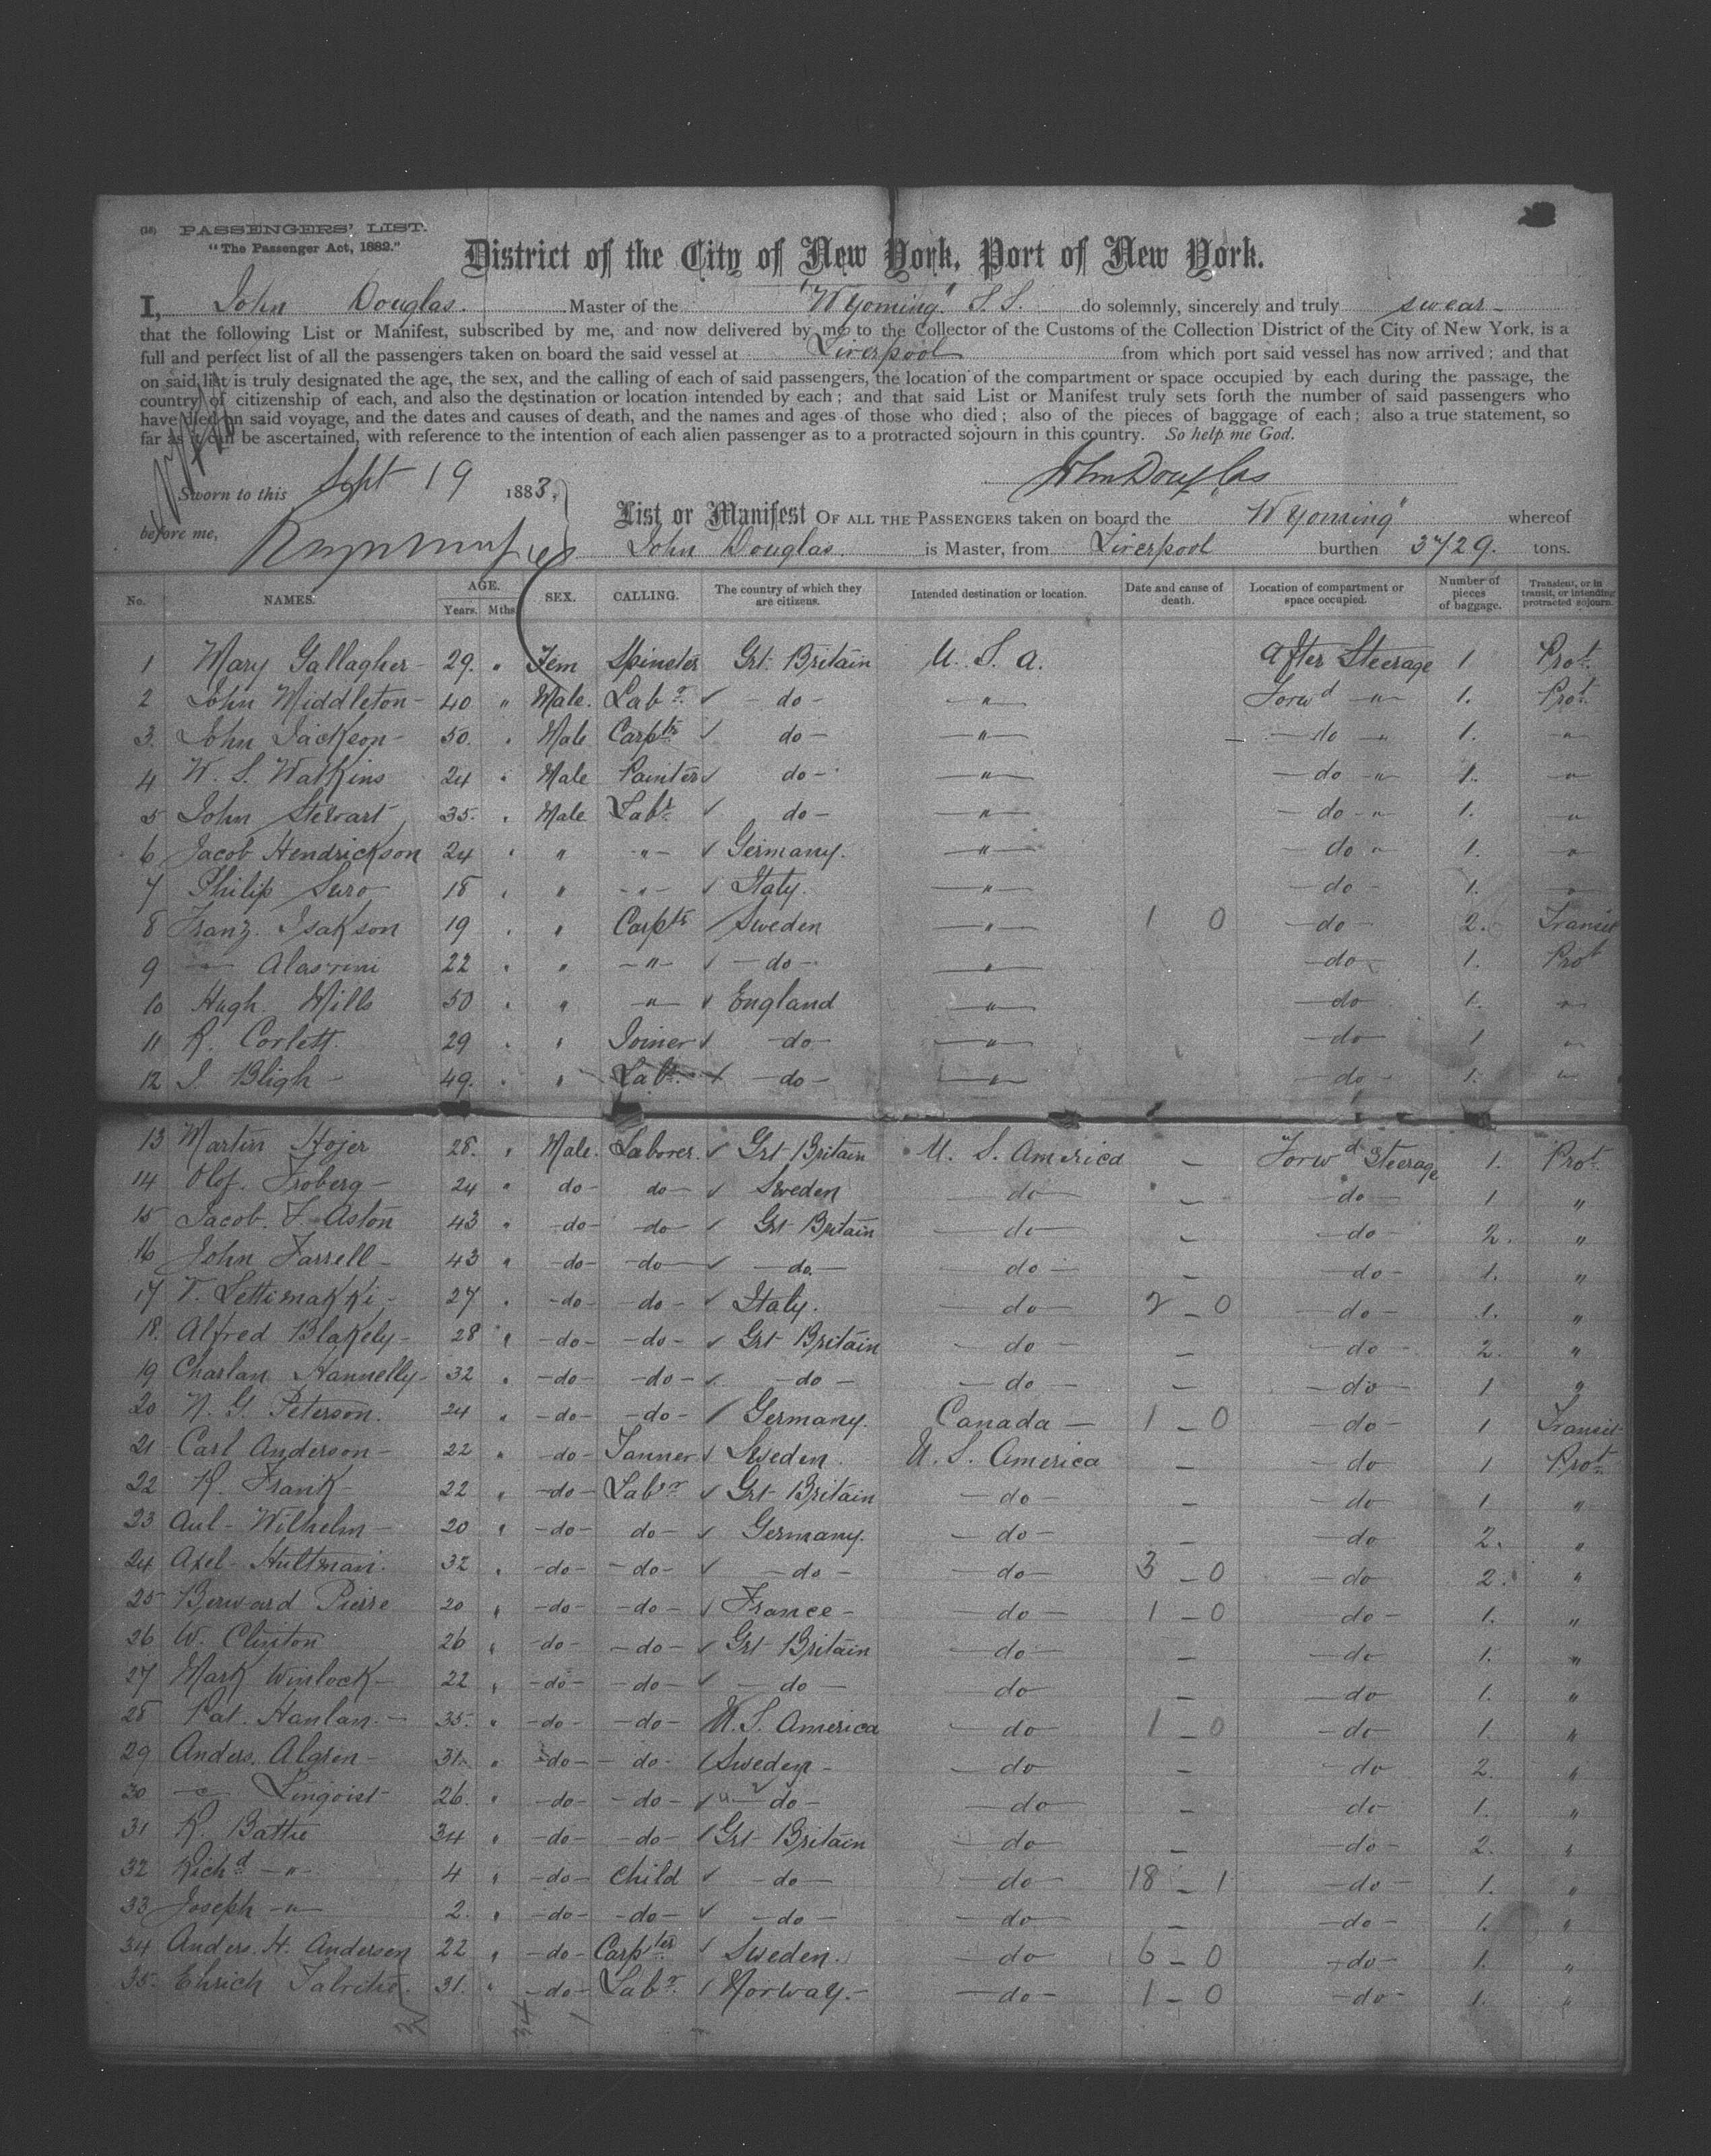 (18) PASSENGERS' LIST.
"The Passenger Act, 1882."
District of the City of New York, Port of New York.
I, John Douglas. Master of the "Wyoming" S.S. do solemnly, sincerely and truly swear
that the following List or Manifest, subscribed by me, and now delivered by me to the Collector of the Customs of the Collection District of the City of New York, is a
full and perfect list of all the passengers taken on board the said vessel at Liverpool from which port said vessel has now arrived; and that
on said list is truly designated the age, the sex, and the calling of each of said passengers, the location of the compartment or space occupied by each during the passage, the
country of citizenship of each, and also the destination or location intended by each; and that said List or Manifest truly sets forth the number of said passengers who
have died on said voyage, and the dates and causes of death, and the names and ages of those who died; also of the pieces of baggage of each; also a true statement, so
far as it can be ascertained, with reference to the intention of each alien passenger as to a protracted sojourn in this country. So help me God.
Sworn to this Sept 19 1883, John Douglas
before me,
List or Manifest OF ALL THE PASSENGERS taken on board the "Wyoming" whereof
John Douglas. is Master, from Liverpool burthen 3729. tons.
No. NAMES. AGE. Years. Mths. SEX. CALLING. The country of which they are citizens. Intended destination or location. Date and cause of death. Location of compartment or space occupied. Number of pieces of baggage. Transient, or in transit, or intending protracted sojourn.
1 Mary Gallagher 29. " Fem Spinster Grt Britain U. S. A. After Steerage 1 Prot
2 John Middleton 40 " Male. Labr ✓ do " Forwd " 1. Prot
3. John Jackson 50. " Male Carptr ✓ do " do " 1. "
4 W. S. Watkins 24 " Male Painter ✓ do " do " 1. "
5 John Stewart 35. " Male Labr ✓ do " do " 1. "
6 Jacob Hendrickson 24 " " " ✓ Germany. " do " 1. "
7 Philip Suro 18 " " " ✓ Italy. " do 1. "
8 Franz. Isakson 19 " " Carptr ✓ Sweden " 1 0 do 2. Transit
9 " 22 " " " ✓ do " do 1. Prot
10 Hugh Mills 50 " " " ✓ England " do 1. "
11 R. Corlett. 29 " " Joiner ✓ do " do 1 "
12 J. Bligh 49. " " Labr ✓ do " do 1. "
13 Martin Hojer 28. " Male. Laborer. ✓ Grt Britain U. S. America - Forwd Steerage 1. Prot.
14 Olof. Froberg 24 " do do ✓ Sweden do - do 1 "
15 Jacob. F. Aston 43 " do do ✓ Grt Britain do - do 2. "
16 John Farrell 43 " do do ✓ do. do - do 1. "
17 T. Lettimakki 27 " do do ✓ Italy. do 2 - 0 do 1. "
18. Alfred Blakely 28 " do do ✓ Grt Britain do - do 2. "
19 Charlan Hannelly 32 " do do ✓ do do - do 1 "
20 N. G. Peterson. 24 " do do ✓ Germany. Canada 1 - 0 do 1 Transit
21 Carl Anderson 22 " do Tanner ✓ Sweden. U. S. America - do 1 Prot.
22 R. Frank 22 " do Labr ✓ Grt Britain do - do 1 "
23 Aul Wilhelm 20 " do do ✓ Germany. do - do 2. "
24 Axel Hultman. 32 " do do ✓ do do 3 - 0 do 2. "
25 Berward Pierre 20 " do do ✓ France do 1 - 0 do 1. "
26 W. Clinton 26 " do do ✓ Grt Britain do - do 1. "
27 Mark Winlock 22 " do do ✓ do do - do 1. "
28 Pat. Hanlan. 35. " do do U.S. America do 1 0 do 1. "
29 Anders. Algren 31. " do do ✓ Sweden do - do 2. "
30 Linqvist 26. " do do ✓ do do - do 1. "
31 R. Battie 34 " do do ✓ Grt Britain do - do 2. "
32 Richd " 4 " do child ✓ do do 18 - 1 do 1. "
33 Joseph " 2. " do do ✓ do do - do 1. "
34 Anders. H. Andersen 22 " do Carpter ✓ Sweden. do 6 - 0 do 1. "
35. Ehrich 31. " do Labr ✓ Norway. do 1 - 0 do 1. "
34